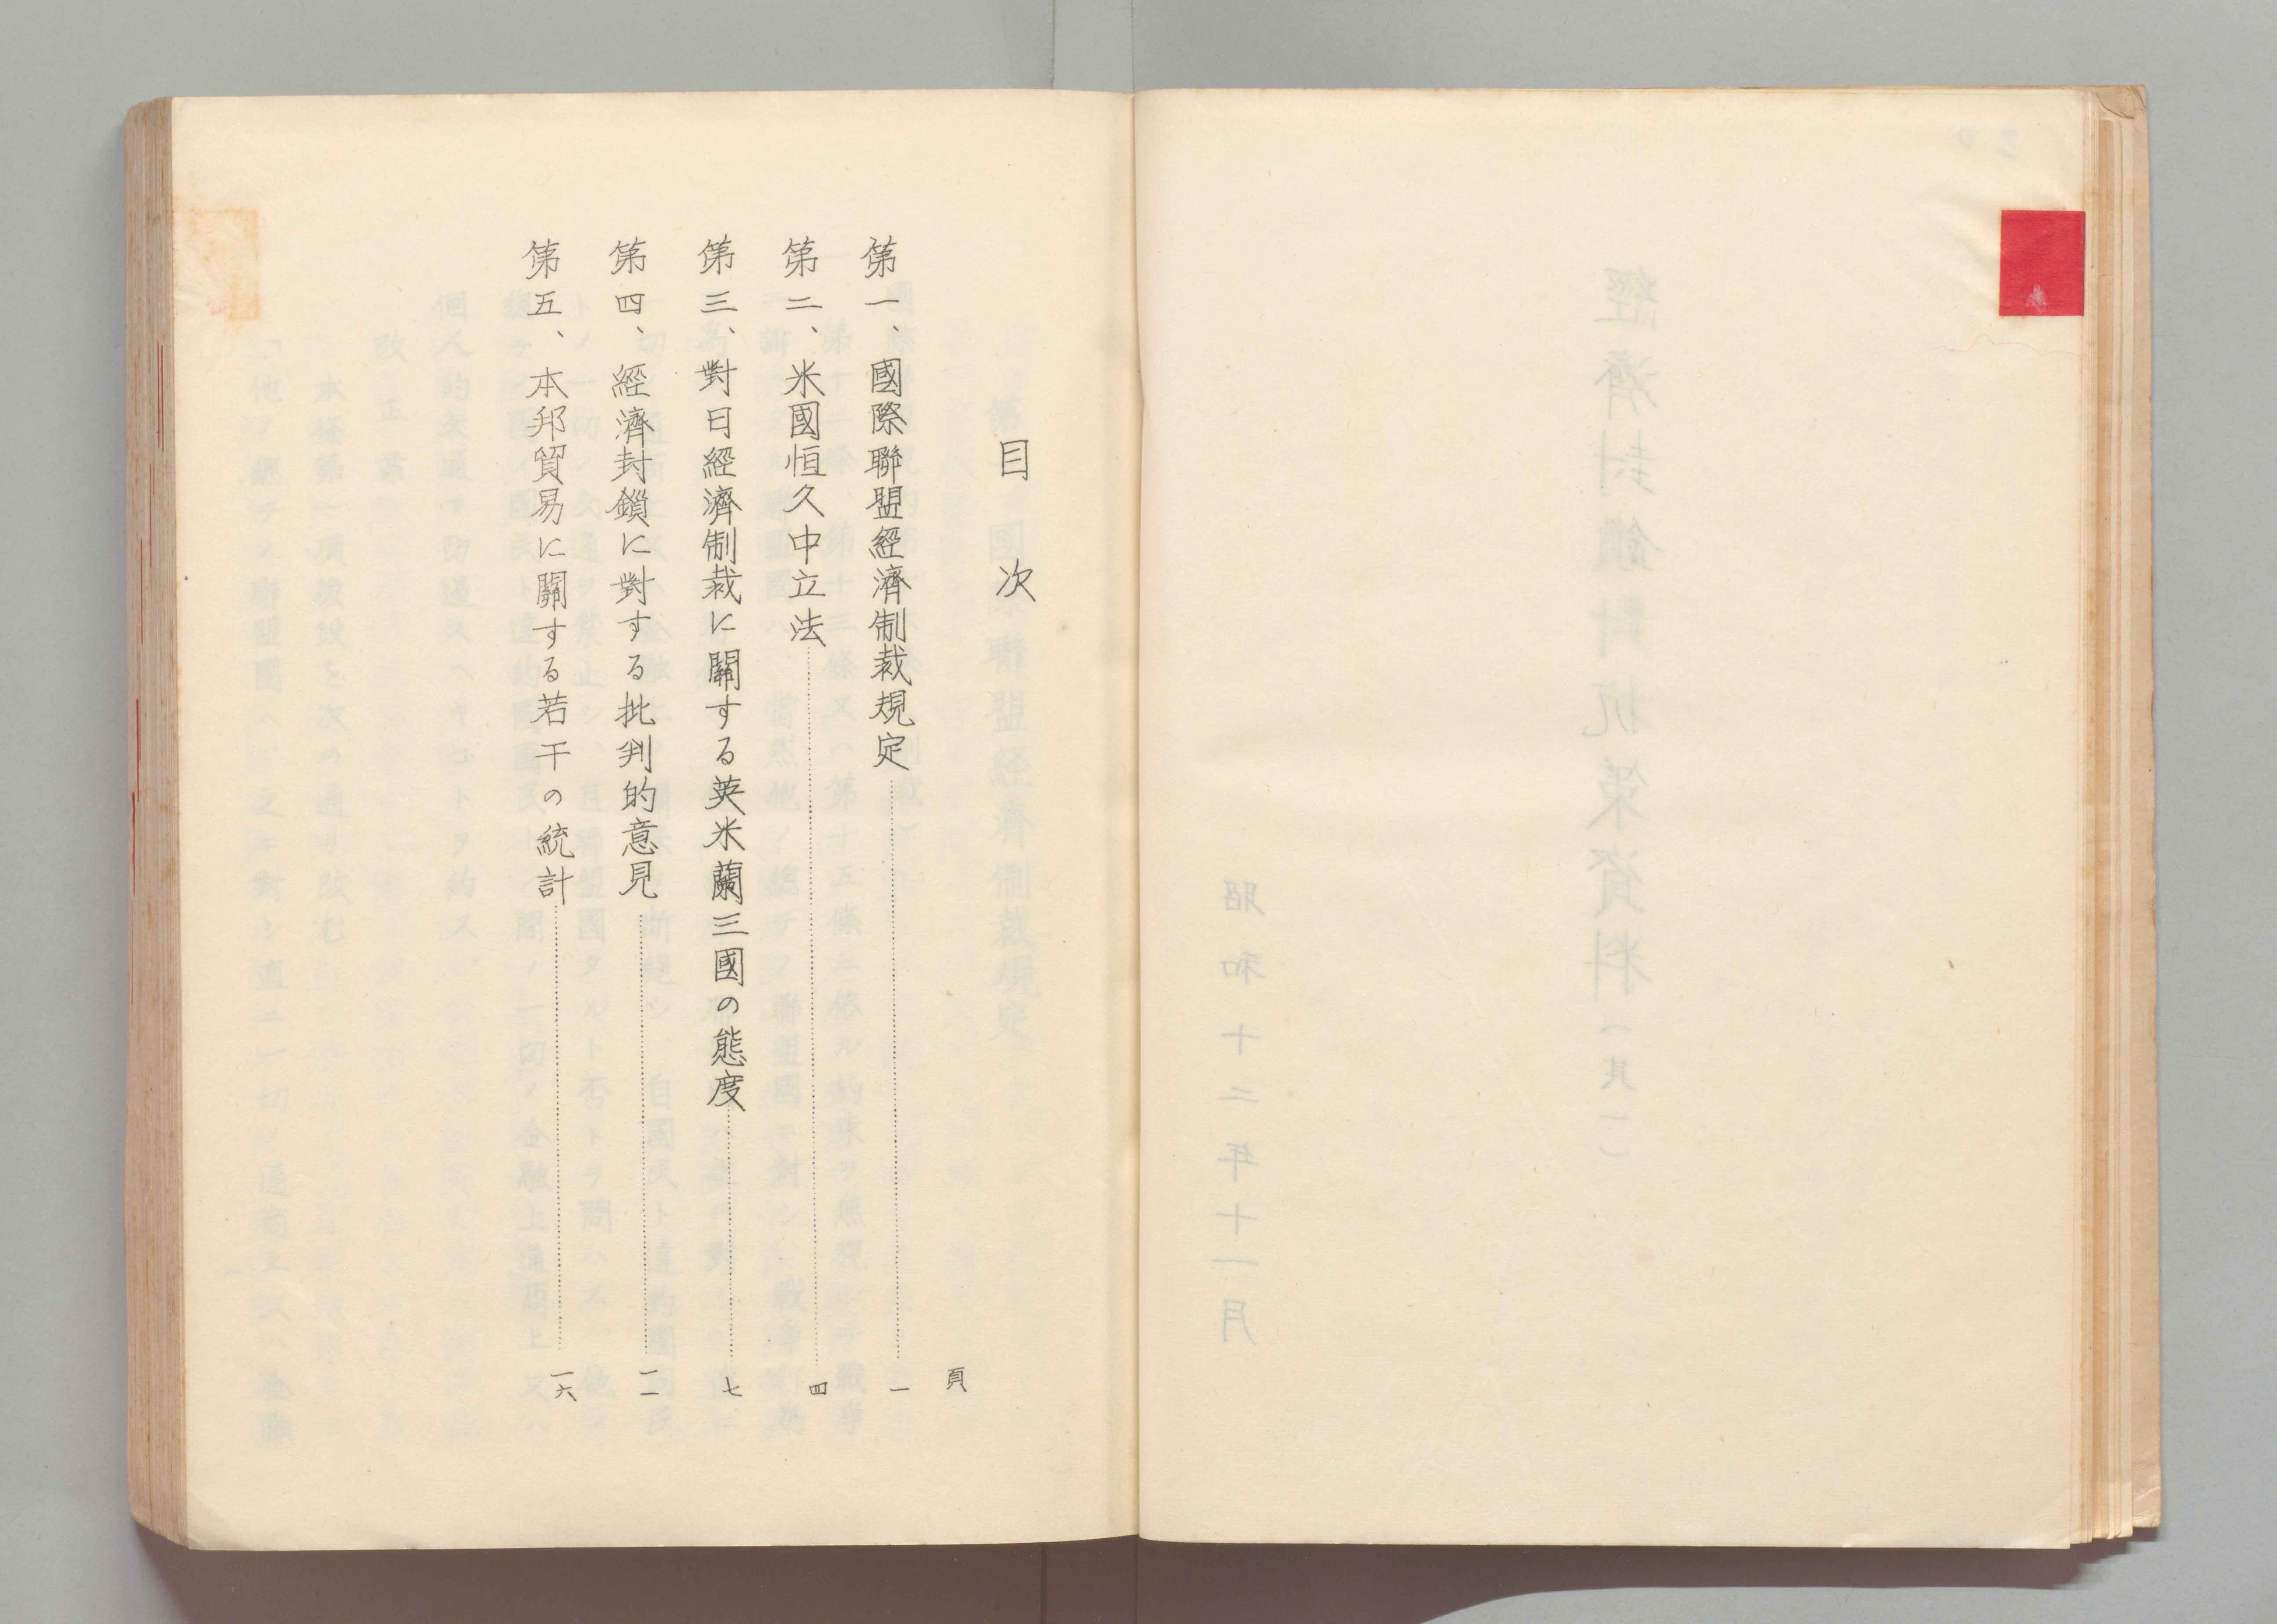 經濟封鎖對抗策資料(其一)
昭和十二年十一月
目次
頁
第一、國際聯盟經濟制裁規定……一
第二、米國恒久中立法……四
第三、對日經濟制裁に關する英米蘭三國の態度……七
第四、經濟封鎖に對する批判的意見……一一
第五、本邦貿易に關する若干の統計……一六